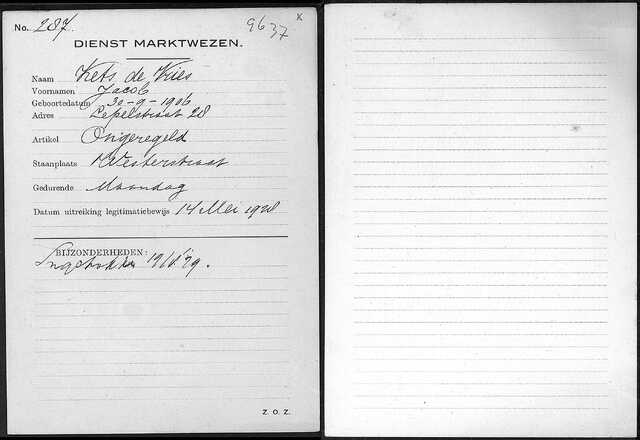 No. 287.
9637
x
DIENST MARKTWEZEN.
Naam Kets de Vries
Voornamen Jacob
Geboortedatum 30-9-1906
Adres Lepelstraat 28
Artikel Ongeregeld
Staanplaats Westerstraat
Gedurende Maandag
Datum uitreiking legitimatiebewijs 14 Mei 1928
BIJZONDERHEDEN:
Ingetrokken
Z. O. Z.